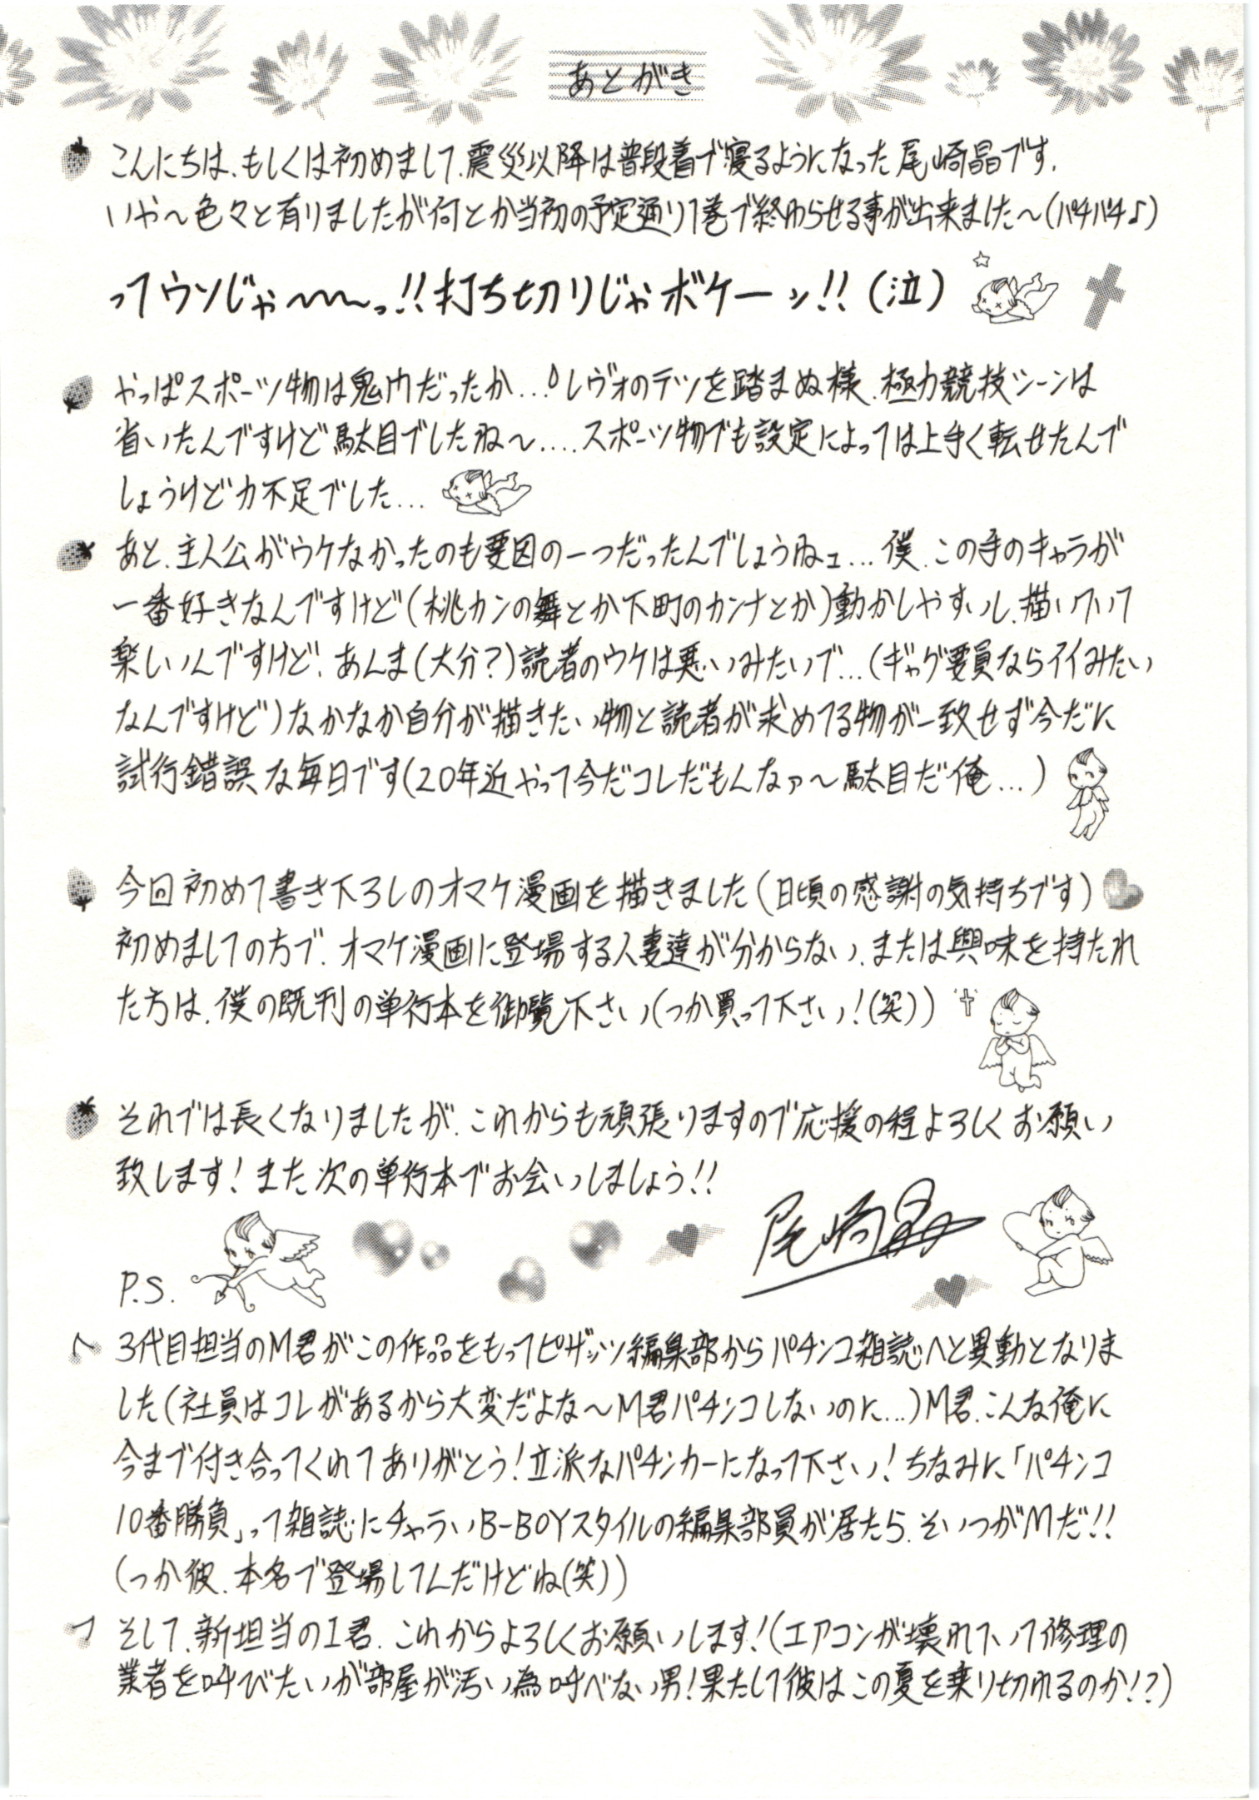 あとがき
こんにちは、もしくは初めまして、震災以降は普段着で寝るようになった尾崎晶です。
いや～色々と有りましたが何とか当初の予定通り1巻で終わらせる事が出来ました～(パチパチ♪)
ってウソじゃ〜〜〜っ!!打ち切りじゃボケーッ!!(泣)
やっぱスポーツ物は鬼門だったか…!レヴォのテツを踏まぬ様、極力競技シーンは
省いたんですけど駄目でしたね～….スポーツ物でも設定によっては上手く転せたんで
しょうけど力不足でした…
あと、主人公がウケなかったのも要因の一つだったんでしょうねェ…僕、この手のキャラが
一番好きなんですけど(桃カンの舞とか下町のカンナとか)動かしやすいし、描いていて
楽しいんですけど、あんま(大分?)読者のウケは悪いみたいで…(ギャグ要員ならイイみたい
なんですけど)なかなか自分が描きたい物と読者が求めてる物が一致せず今だに
試行錯誤な毎日です(20年近やって今だコレだもんなァ～駄目だ俺…)
今回初めて書き下ろしのオマケ漫画を描きました(日頃の感謝の気持ちです)
初めましての方で、オマケ漫画に登場する人妻達が分からない、または興味を持たれ
た方は、僕の既刊の単行本を御覧下さい(つか買って下さい!(笑))
それでは長くなりましたが、これからも頑張りますので応援の程よろしくお願い
致します!また次の単行本でお会いしましょう!!
尾崎晶
P.S.
3代目担当のM君がこの作品をもってピザッツ編集部からパチンコ雑誌へと異動となりま
した(社員はコレがあるから大変だよな～M君パチンコしないのに…)M君、こんな俺に
今まで付き合ってくれてありがとう!立派なパチンカーになって下さい!ちなみに「パチンコ
10番勝負」って雑誌にチャラいB-BOYスタイルの編集部員が居たら、そいつがMだ!!
(つか彼、本名で登場してんだけどね(笑))
そして、新担当のI君、これからよろしくお願いします!(エアコンが壊れていて修理の
業者を呼びたいが部屋が汚い為呼べない男!果たして彼はこの夏を乗り切れるのか!?)